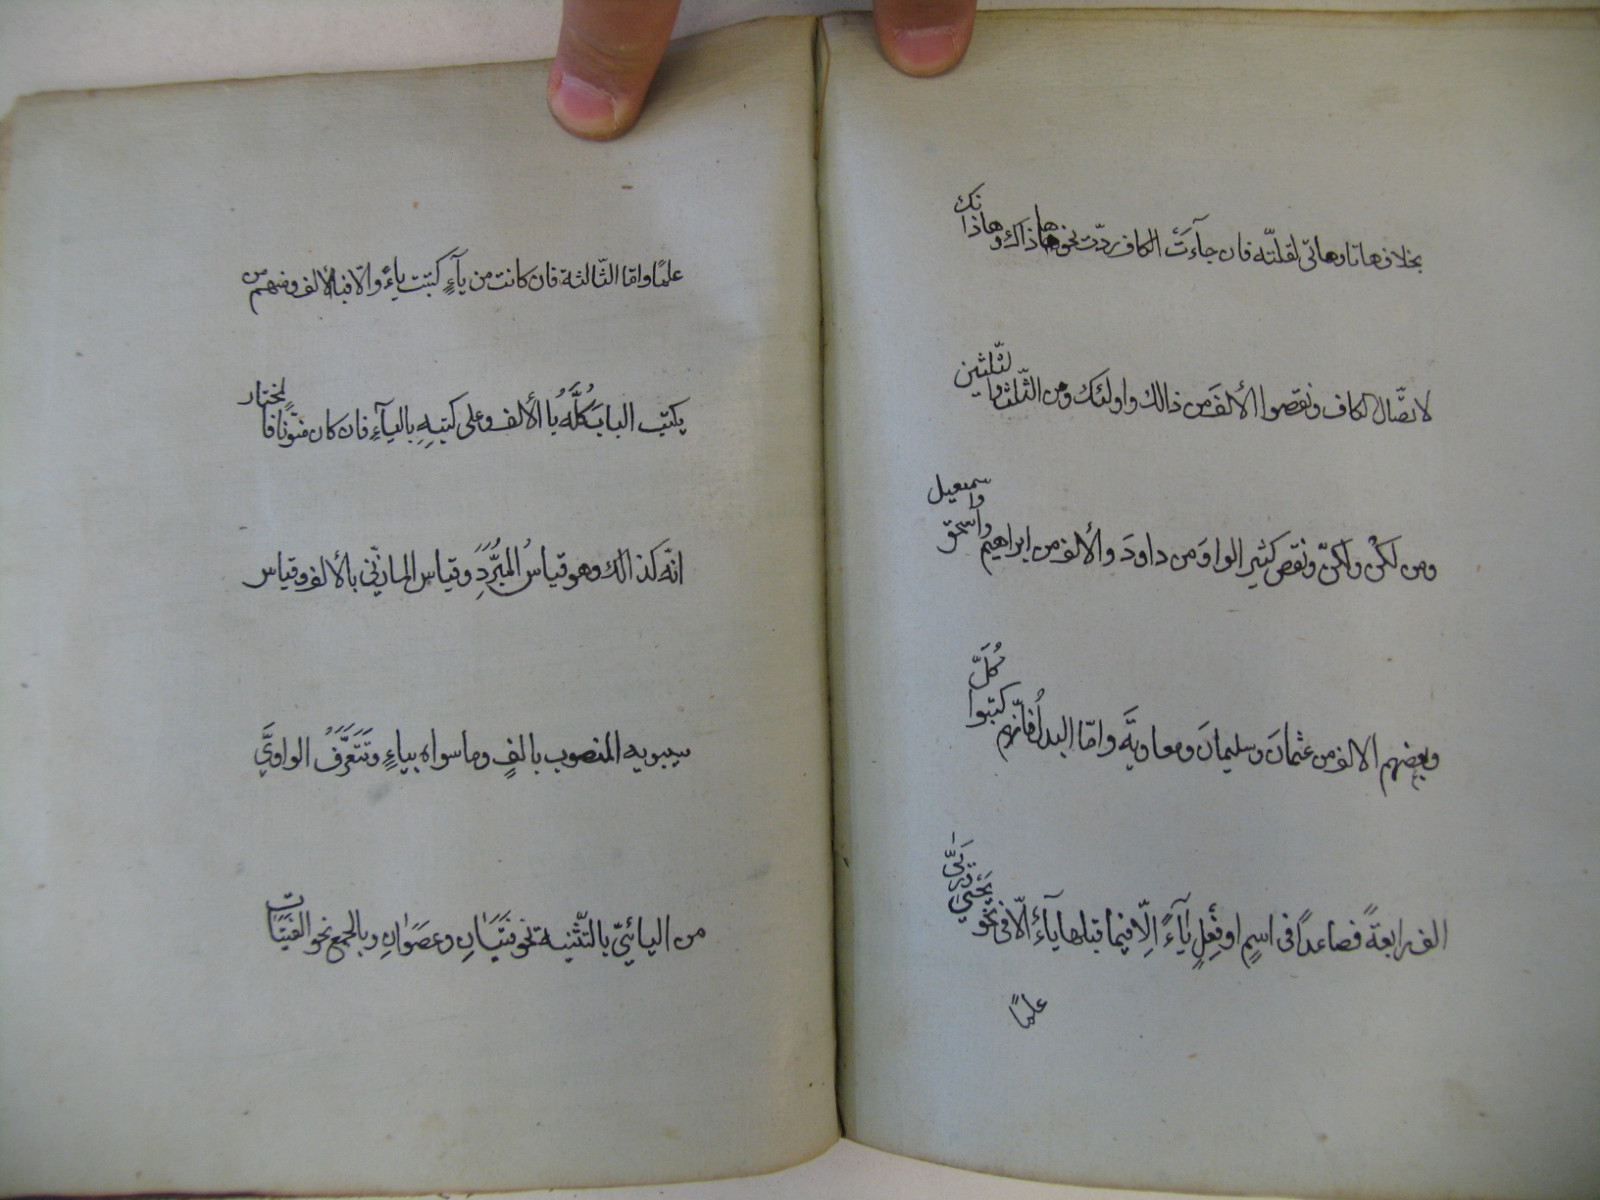 بخلاف هاتا وهاتى لقلتّه فان جآءَتْ الكاف ردّت نحو هاذاك وهاذانك
لاتصّال الكاف ونقصوا الألفَ من ذالك واولئك ومن الثّلث والثّلثين
ومن لكنْ ولكنّ ونقص كثير الواوَ من داودَ والألف من ابراهيم واسحق واسمعيل
وبعضهم الالف من عثمانَ وسليمانَ ومعاويةَ وامّا البدلُ فانّهم كتبوا كُلَّ
الف رابعةً فصاعداً فى اسمٍ او فِعْلٍ يآءً اِلّا فيما قبلها يآءٌ الّا فى نحو يَحْيَى وَرَيَّى
علمًا
علمًا وامّا الثّالثة فان كانت من يآءٍ كتبت ياءً والّا فبالألف ومنهم من
يكتب البابَ كلَّهُ بالألف وعلى كتبِهِ باليآءِ فان كان منوّنًا فالمختار
انّه كذالك وهو قياسُ المبرّدِ وقياس المازنّي بالألف وقياس
سيبويه المنصوب بالفٍ وما سواه بياءٍ وتَتَعَرَّفُ الواويَّ
من اليائيّ بالتّثنية نحو فتَيَانِ وعصَوَانِ وبالجمع نحو الفتيات